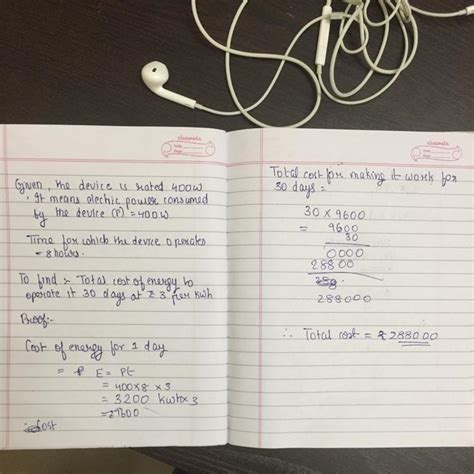 Given, the device is rated 400W
∴ It means electric power consumed
by the device (P) = 400W
Time for which the device operates
= 8 hours.
To find :- Total cost of energy to
operate it 30 days at ₹ 3 per kWh
Proof:-
Cost of energy for 1 day
= E = Pt
= 400×8 × 3
= 3200 kWh×3
= 9600
Total cost for making it work for
30 days =
30 × 9600
= 9600
30
0000
28800
288000
∴ Total cost = ₹ 2880.00